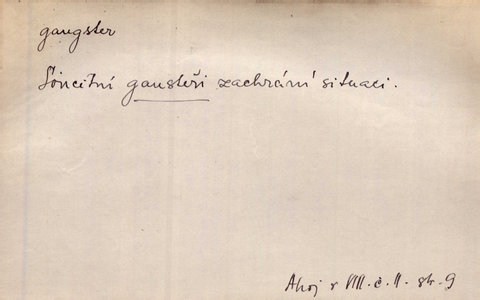 gangster
Soucitní gangsteři zachrání situaci.
Ahoj r VIII. č. 11. str. 9